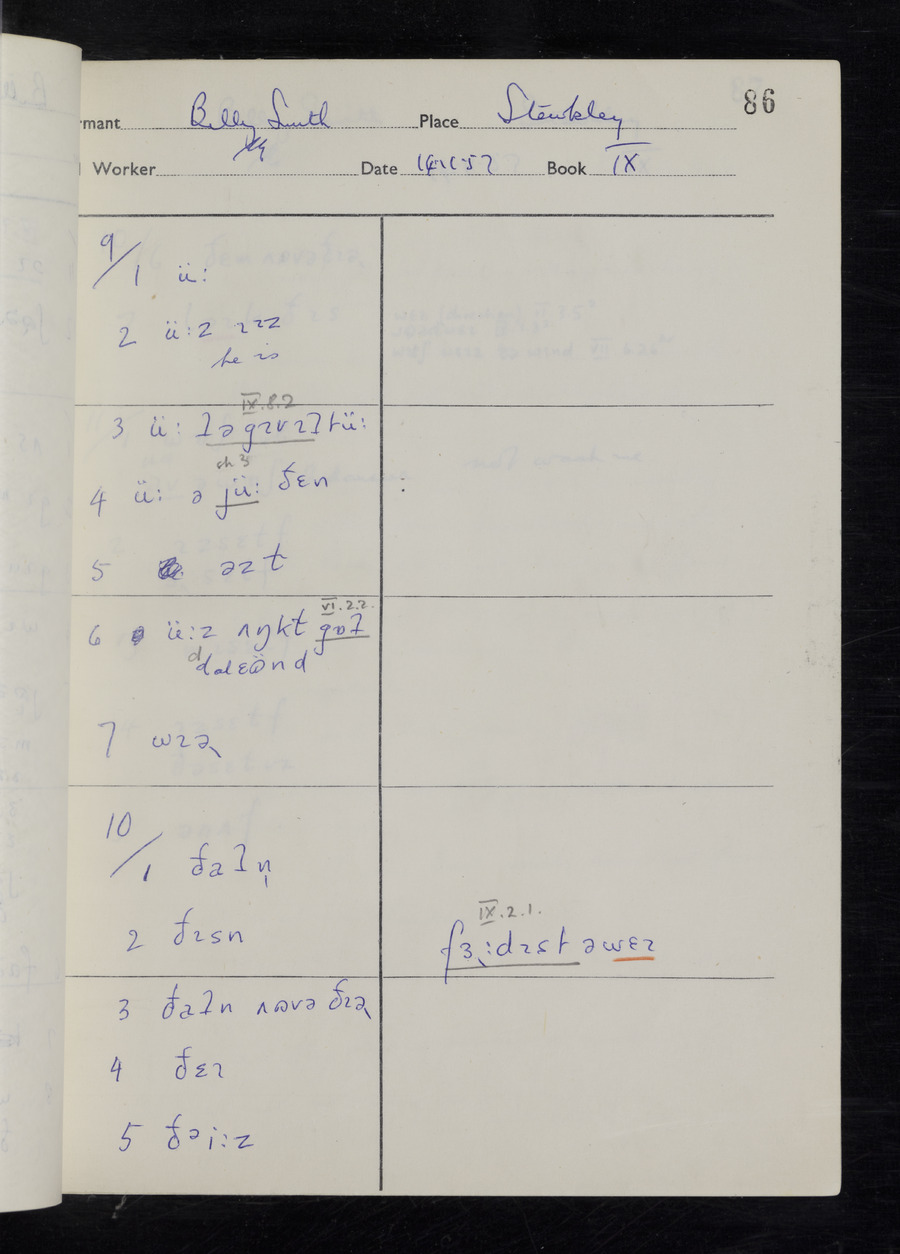 86
rmant Billy Smith Place Stewkley
Worker Date 14·11·57 Book IX
9/1 ü:
2 ü:z ɪzz
he is
IX.8.2
3 ü: ɫəgɪvɪɫtü:
ch 3
4 ü: ə jü: ðɛn
5 əzt
VI.2.2.
6 ü:z ʌŋkt gɒɫ
7 wɪə
10/1 ðaɫn̩
2 ðɪsn
IX.2.1.
fɜ:dɪst əwɛɪ
3 ðaɫn ʌʊvə ðɪə
4 ðɛɪ
5 ðəi:z